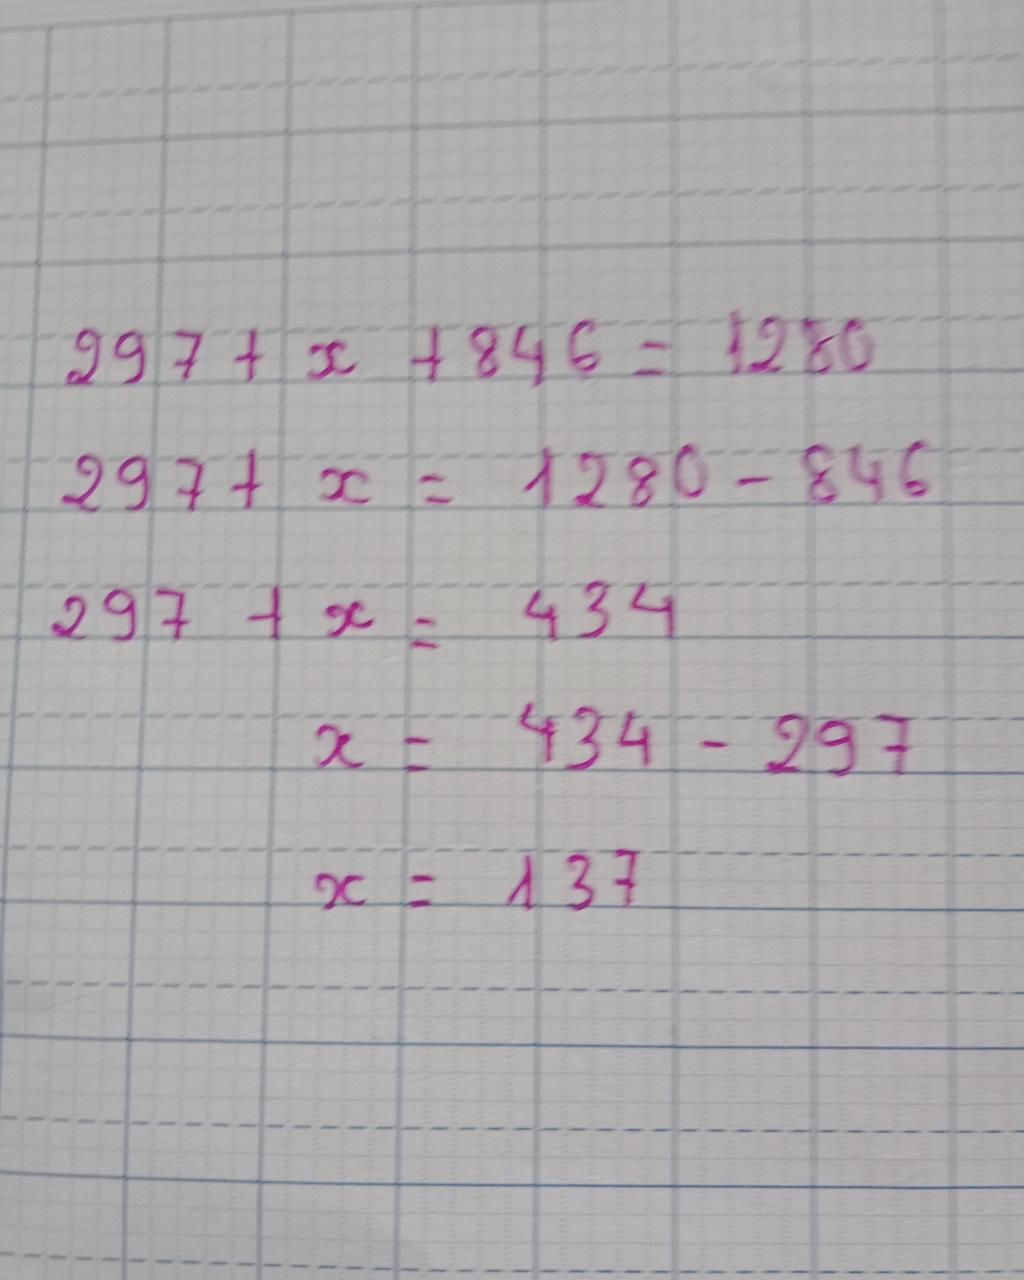 297 + x + 846 = 1280
297 + x = 1280 - 846
297 + x = 434
x = 434 - 297
x = 137